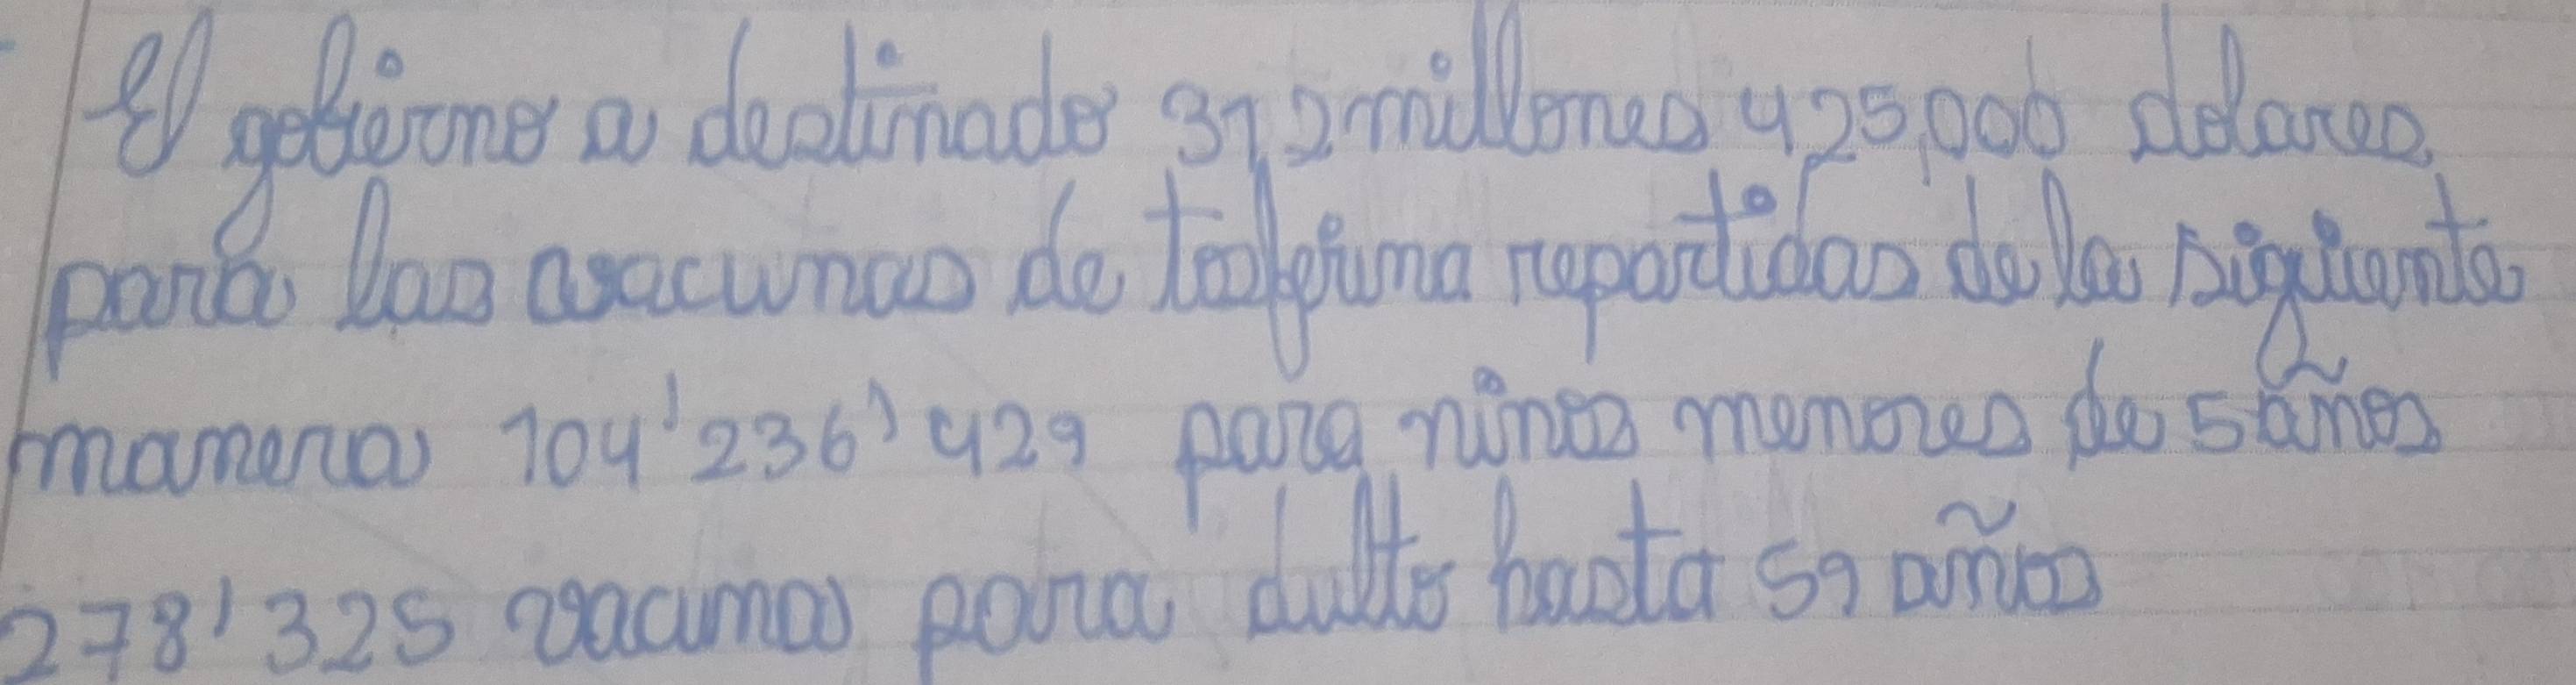 El gobierno a destinado 312 millones 425,000 dolares
para las vacunas de tosferina repartidas de la siguiente
manera 104'236'429 para niños menores de 5 años
278'325 vacunas para dulto hasta 59 años